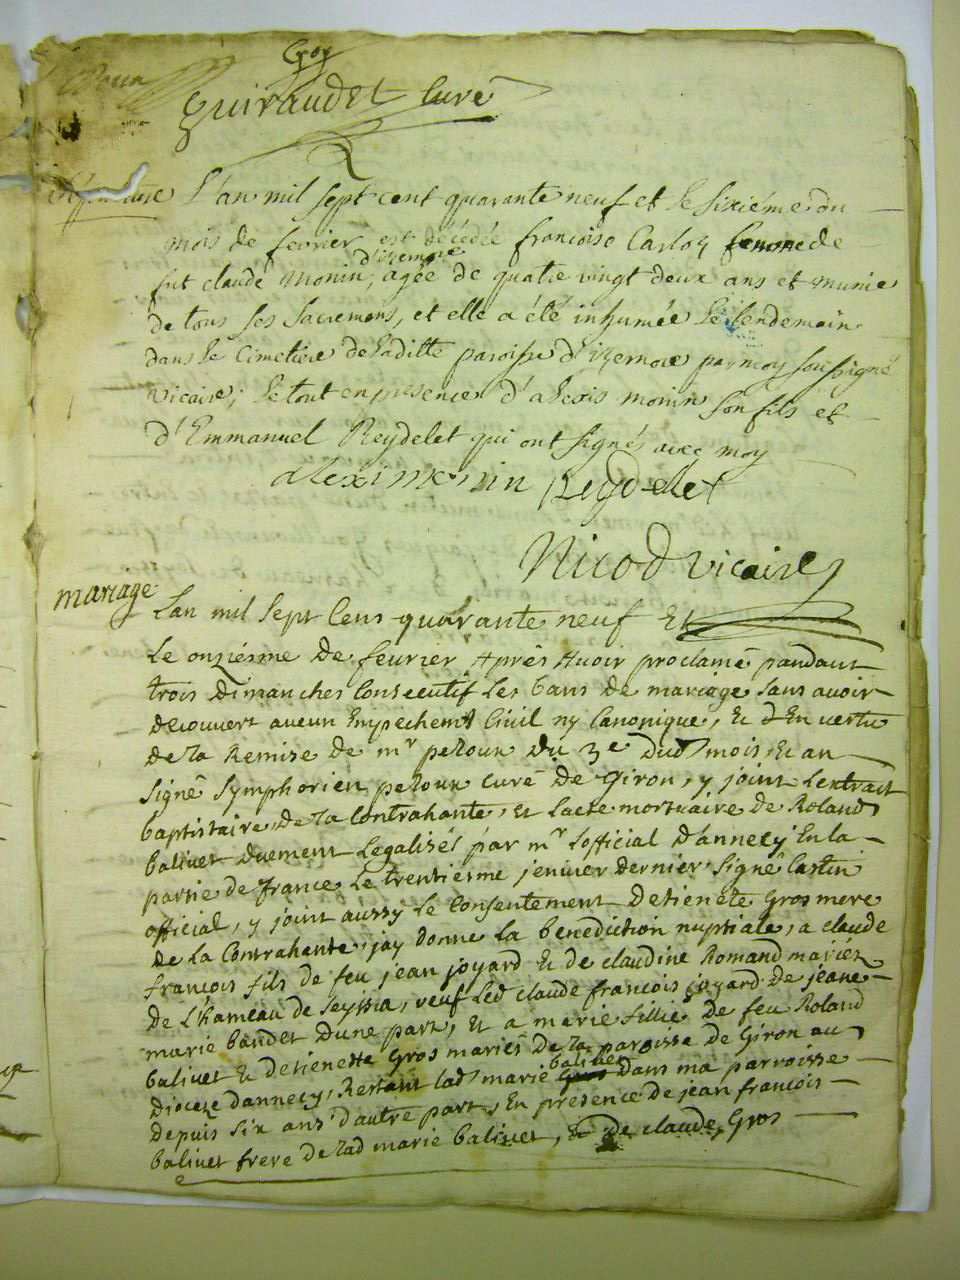 Croy
Guiraudet Curé
Sépulture L'an mil sept cent quarante neuf et le sixième du
mois de fevrier est décédée francoise Carloz femme de
d'izernore
fut claude Monin, agée de quatre vingt deux ans et munie
de tous ses sacremens, et elle a été inhumée le lendemain
dans le Cimetiere de laditte paroisse d'izernore par moy soussigné
vicaire; le tout en presence d'alexis monin son fils et
d'Emmanuel Reydelet qui ont signés avec moy
alexi monin Reydelet
Nicod vicaire
mariage
Lan mil sept Cens quarante neuf Et
Le onziesme de feurier Apres Auoir proclamé pandant
trois dimanches Consecutif Les bans de mariage sans avoir
decouvert aucun Empechemt Civil ny Canonique, Et d En vertu
de la Remise de mr peloux du 3e dud mois et an
signé symphorien peloux curé de Giron, y joint Lextrait
baptistaire de la Contrahante, Et lacte mortuaire de Roland
baliuet duement Legalisés par mr Lofficial D'annecy En la
partie de france le trentiesme jenuier dernier signé Castin
official, y joint aussy Le Consentement detienete Gros mere
de la Contrahante, jay donné La benediction nuptiale, a claude
françois fils de feu jean joyard Et de claudine Romand mariés
de L'hameau de seyssia, veuf Led claude francois joyard de jeane
marie baudet dune part, Et a marie fillie de feu Roland
baliuet Et detienette Gros mariés de la parroisse de Giron au
baliuet
Dioceze dannecy, Restant lad marie Gros dans ma parroisse
depuis six ans d'autre part, En presence de jean francois
baliuet frere de lad marie baliuet, & de claude Gros